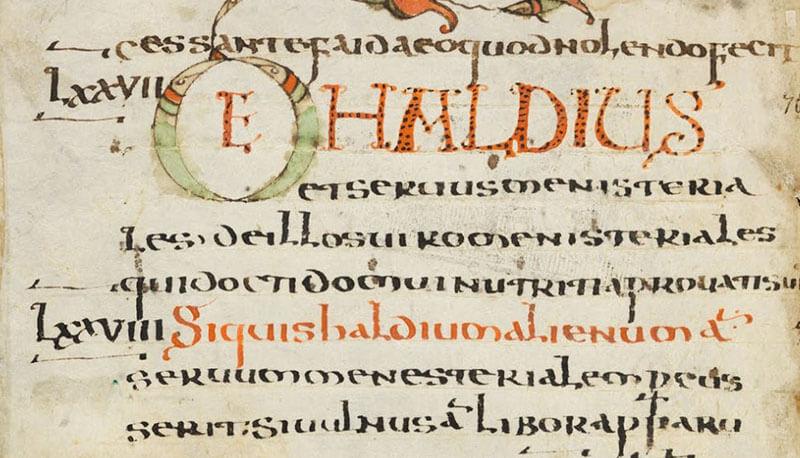 cessante faida eo quod nolendo fecit
LXXVII DE HALDIUS
et seruus menisteria
les, de illos uiro menisteriales
qui docti domui nutriti aprouati su
LXXVIII Si quis haldium alienum a
seruum menesterialem percus
serit: si uulnus a libor apparu